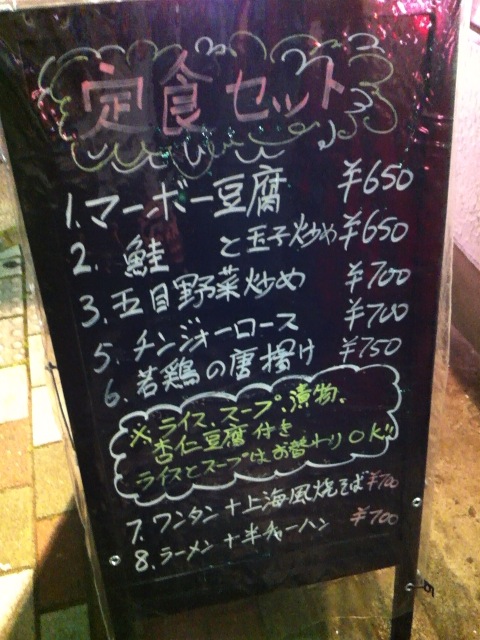 定食セット
1.マーボー豆腐 ¥650
2. 鮭 と玉子炒め ¥650
3.五目野菜炒め ¥700
5.チンジャオーロース ¥700
6.若鶏の唐揚け ¥750
※ライス、スープ、漬物、
杏仁豆腐付き
ライスとスープはお替わりOK!!
7.ワンタン+上海風焼そば ¥700
8.ラーメン+半チャーハン ¥700